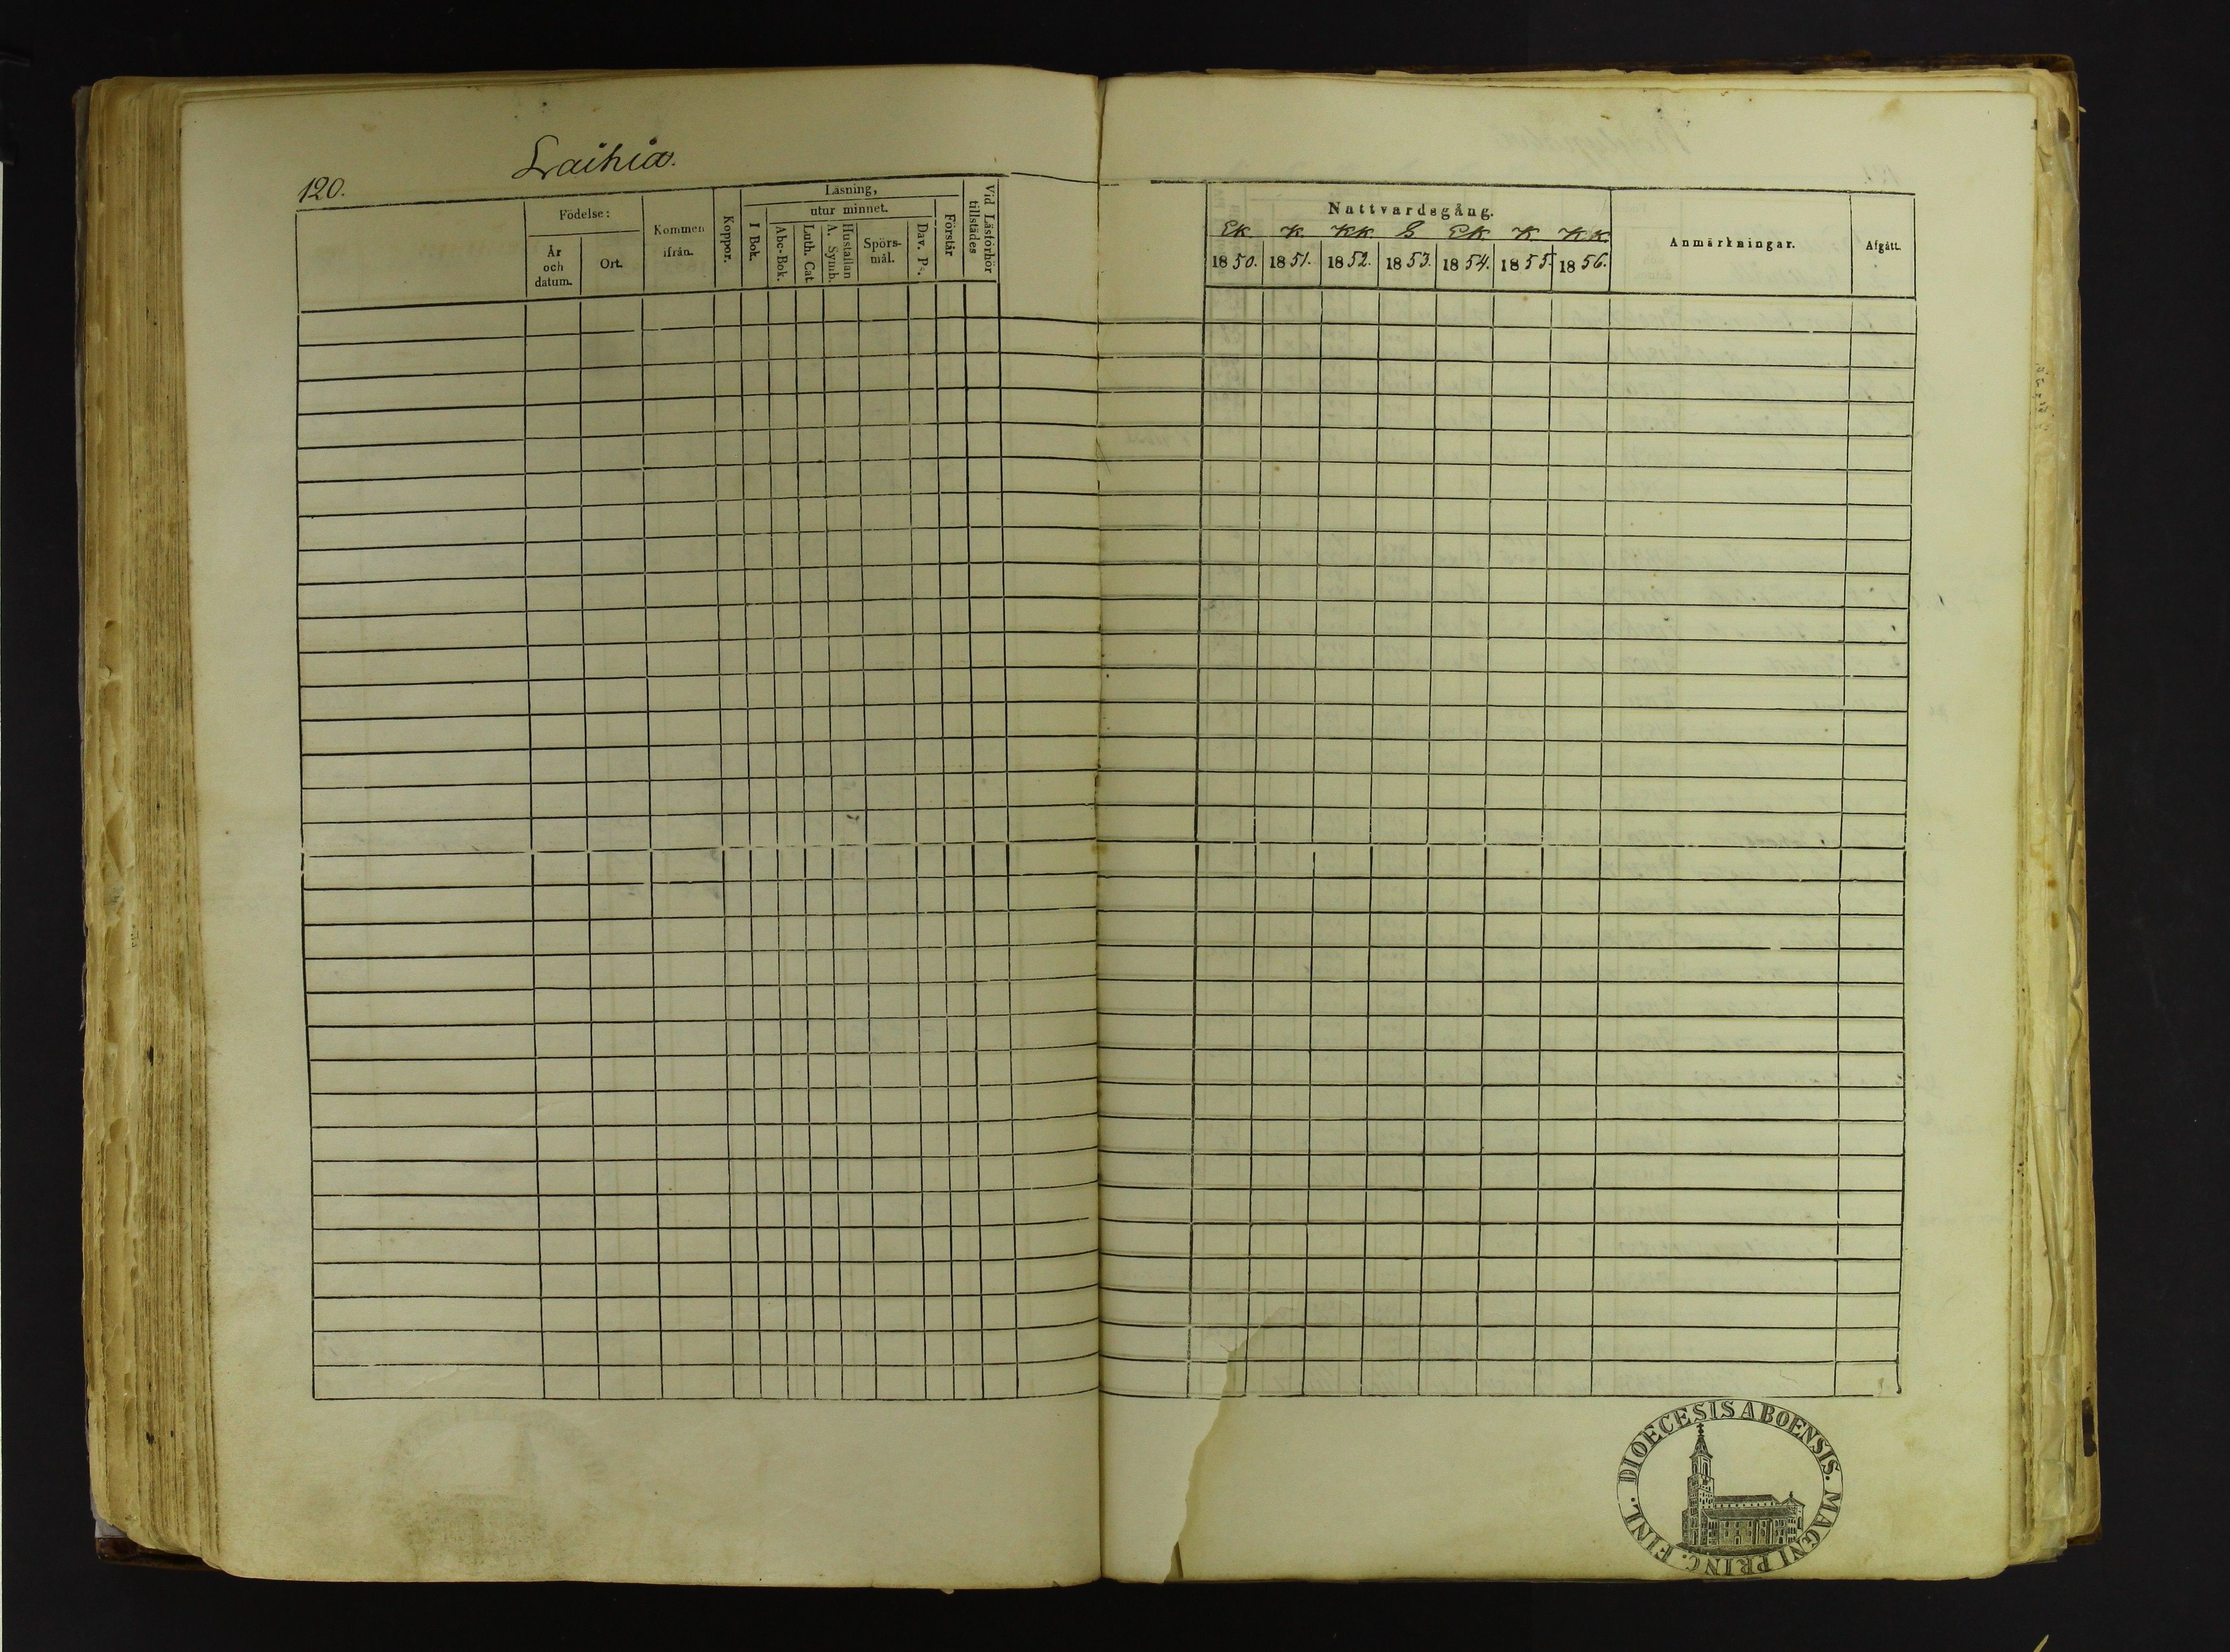 Laihia.
120.
Födelse:
År och datum.
Ort.
Kommen ifrån.
Koppor.
Läsning,
utur minnet.
I Bok.
Abc-Bok.
Luth. Cat.
Hustaflan A. Symb.
Spörs-mål.
Dav. Ps.
Förstår
Vid Läsförhör tillstädes
Nattvardsgång.
Ek. K KK. S Ek K KK
1850. 1851. 1852. 1853. 1854. 1855. 1856.
Anmärkningar.
Afgått.
DIOECESIS ABOENSIS. MAGNI PRINC. FINL.